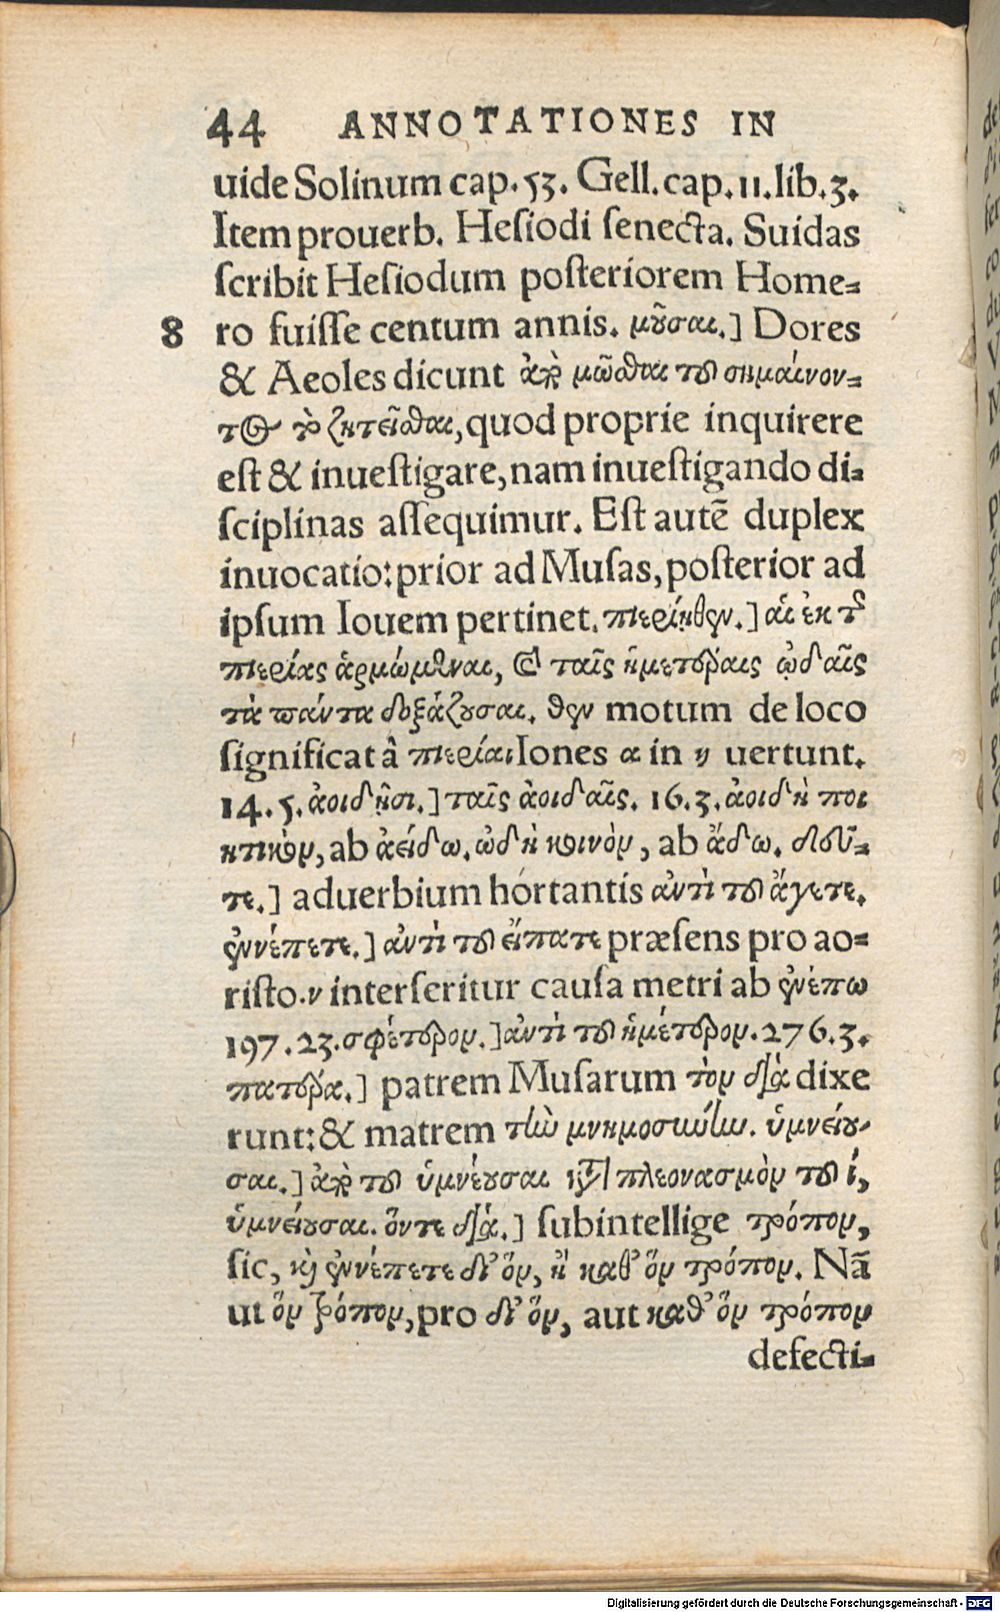 44 ANNOTATIONES IN
uide Solinum cap. 53. Gell. cap. 11. lib. 3.
Item prouerb. Hesiodi senecta. Suidas
scribit Hesiodum posteriorem Home-
8 ro fuisse centum annis. μοῦσαι.] Dores
& Aeoles dicunt παρὰ μῶσθαι τοῦ σημαίνον-
τος τὸ ζητεῖσθαι, quod proprie inquirere
est & inuestigare, nam inuestigando di-
sciplinas assequimur. Est autē duplex
inuocatio: prior ad Musas, posterior ad
ipsum Iouem pertinet. πιερίηθεν.] αἱ ἐκ τῆς
πιερίας ἁρμώμεναι, καὶ ταῖς ἡμετέραις ᾠδαῖς
τὰ πάντα δοξάζουσαι. θεν motum de loco
significat â πιερία. Iones α in η uertunt.
14. 5. ἀοιδῇσι.] ταῖς ἀοιδαῖς. 16. 3. ἀοιδὴ ποι
ητικὸν, ab ἀείδω. ὠδὴ κοινὸν, ab ἄδω. δεῦ-
τε.] aduerbium hortantis ἀντὶ τοῦ ἄγετε.
ἐννέπετε.] ἀντὶ τοῦ εἴπατε præsens pro ao-
risto. ν interseritur causa metri ab ἐνέπω
197. 23. σφέτερον.] ἀντὶ τοῦ ἡμέτερον. 276. 3.
πατέρα.] patrem Musarum τὸν δία dixe
runt: & matrem τὴν μνημοσύνην. ὑμνείου-
σαι.] παρὰ τοῦ ὑμνέουσαι κατὰ πλεονασμὸν τοῦ ι,
ὑμνείουσαι. ὅντε διά.] subintellige τρόπον,
sic, καὶ ἐννέπετε δι’ ὅν, ἢ καθ’ ὅν τρόπον. Nā
ut ὅν τρόπον, pro δι’ ὅν, aut καθ’ ὅν τρόπον
defecti-
Digitalisierung gefördert durch die Deutsche Forschungsgemeinschaft - DFG